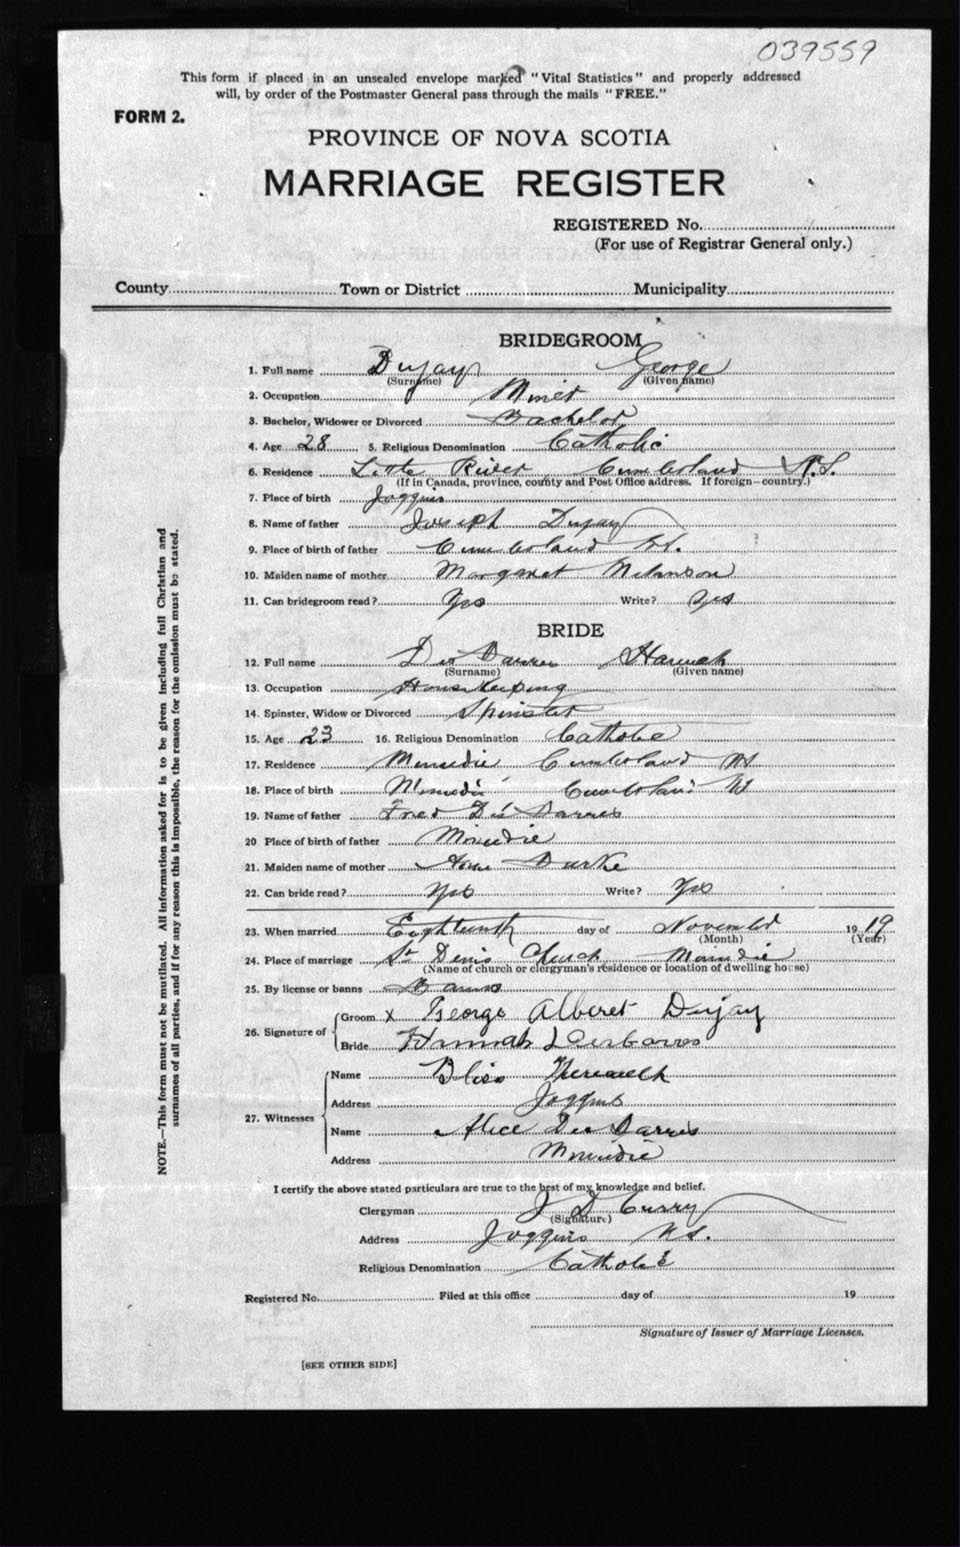 039559
This form if placed in an unsealed envelope marked "Vital Statistics" and properly addressed
will, by order of the Postmaster General pass through the mails "FREE."
FORM 2.
PROVINCE OF NOVA SCOTIA
MARRIAGE REGISTER
REGISTERED No.
(For use of Registrar General only.)
County Town or District Municipality
BRIDEGROOM
1. Full name Dujay George
(Surname) (Given name)
2. Occupation Miner
3. Bachelor, Widower or Divorced Bachelor
4. Age 28 5. Religious Denomination Catholic
6. Residence Little River Cumberland N.S.
(If in Canada, province, county and Post Office address. If foreign—country.)
7. Place of birth Joggins
8. Name of father Joseph Dujay
9. Place of birth of father Cumberland
10. Maiden name of mother Margaret Melanson
11. Can bridegroom read? Yes Write? Yes
BRIDE
12. Full name Des Barres Hannah
(Surname) (Given name)
13. Occupation House Keeping
14. Spinster, Widow or Divorced Spinster
15. Age 23 16. Religious Denomination Catholic
17. Residence Minudie Cumberland NS
18. Place of birth Minudie Cumberland NS
19. Name of father Fred Des Barres
20 Place of birth of father Minudie
21. Maiden name of mother Burke
22. Can bride read? Yes Write? Yes
23. When married Eighteenth day of November 1919
(Month) (Year)
24. Place of marriage St Denis Church Minudie
(Name of church or clergyman's residence or location of dwelling house)
25. By license or banns Banns
26. Signature of Groom X George Alberet Dujay
Bride Hannah DesBarres
27. Witnesses Name Bliss
Address Joggins
Name Alice Des Barres
Address Minudie
I certify the above stated particulars are true to the best of my knowledge and belief.
Clergyman J D Curry
(Signature)
Address Joggins N.S.
Religious Denomination Catholic
Registered No. Filed at this office day of 19
Signature of Issuer of Marriage Licenses.
[SEE OTHER SIDE]
NOTE.—This form must not be mutilated. All information asked for is to be given including full Christian and
surnames of all parties, and if for any reason this is impossible, the reason for the omission must be stated.